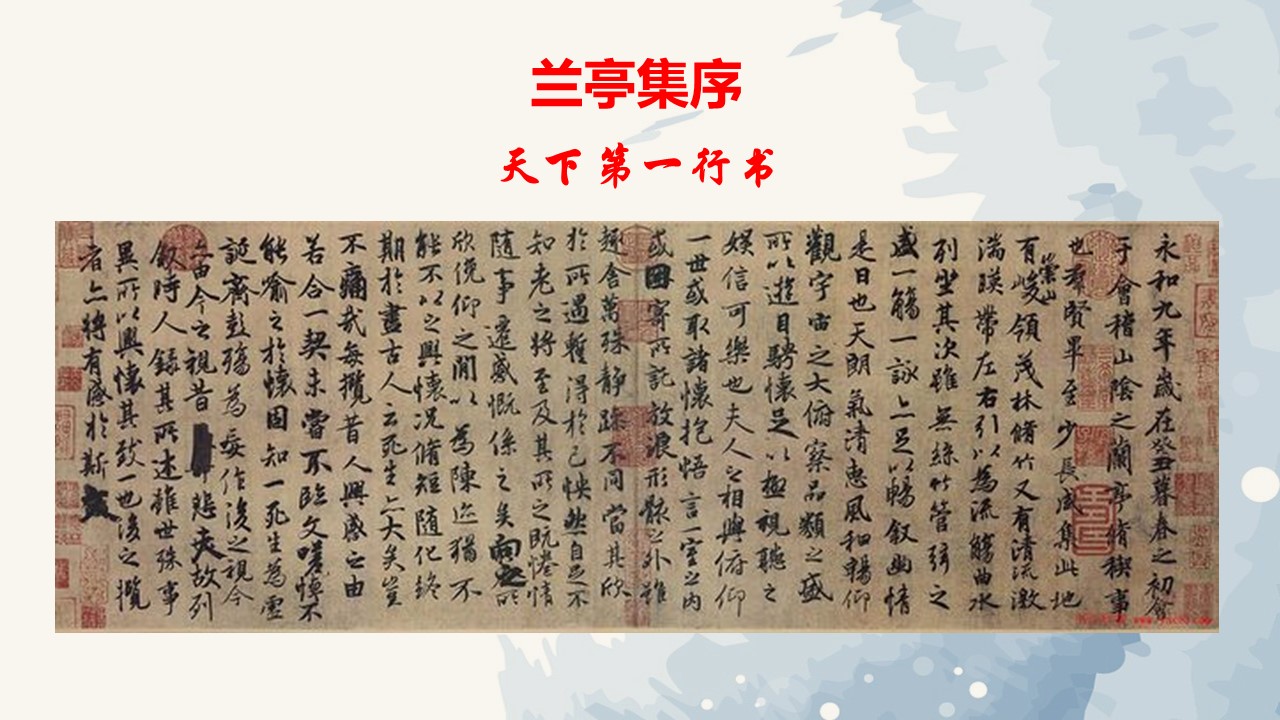 兰亭集序
天下第一行书
永和九年歲在癸丑暮春之初會
于會稽山陰之蘭亭脩稧事
也羣賢畢至少長咸集此地
有崇山峻領茂林脩竹又有清流激
湍暎帶左右引以為流觴曲水
列坐其次雖無絲竹管弦之
盛一觴一詠亦足以暢叙幽情
是日也天朗氣清惠風和暢仰
觀宇宙之大俯察品類之盛
所以遊目騁懷足以極視聽之
娛信可樂也夫人之相與俯仰
一世或取諸懷抱悟言一室之內
或因寄所託放浪形骸之外雖
趣舍萬殊静躁不同當其欣
於所遇蹔得於己怏然自足不
知老之將至及其所之既惓情
隨事遷感慨係之矣向之所
欣俛仰之閒以為陳迹猶不
能不以之興懷況脩短隨化終
期於盡古人云死生亦大矣豈
不痛哉每攬昔人興感之由
若合一契未嘗不臨文嗟悼不
能喻之於懷固知一死生為虛
誕齊彭殤為妄作後之視今
亦由今之視昔悲夫故列
叙時人錄其所述雖世殊事
異所以興懷其致一也後之攬
者亦將有感於斯文